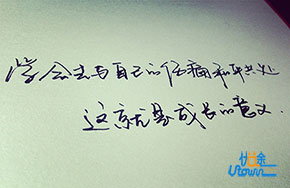 学会去与自己的伤痛和平共处
这就是成长的意义.
廿途